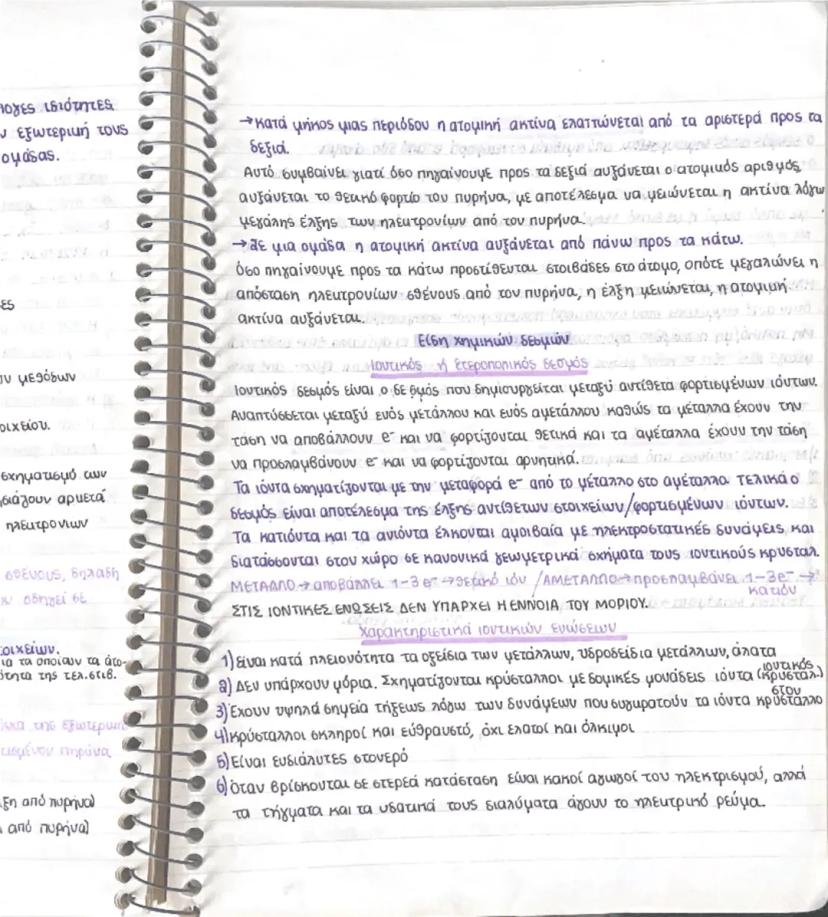 λογες ιδιότητες
εξωτερική τους
ομάδας.
ες
ων μεθόδων
οιχείου.
σχηματισμό των
άγουν αρκετά
ηλεκτρονίων
σθένους, δηλαδή
οδηγεί σε
οιχείων.
ια τα οποίαν τα άτο-
ότητα της τελ.στιβ.
της εξωτερική
πυρήνα
ξη από πυρήνα)
από πυρήνα)
→Κατά μήκος μιας περιόδου η ατομική ακτίνα ελαττώνεται από τα αριστερά προς τα
δεξιά.
Αυτό συμβαίνει γιατί όσο πηγαίνουμε προς τα δεξιά αυξάνεται ο ατομικός αριθμός,
αυξάνεται το θετικό φορτίο του πυρήνα, με αποτέλεσμα να μειώνεται η ακτίνα λόγω
μεγάλης έλξης των ηλεκτρονίων από τον πυρήνα.
→Σε μια ομάδα η ατομική ακτίνα αυξάνεται από πάνω προς τα κάτω.
Όσο πηγαίνουμε προς τα κάτω προστίθενται στοιβάδες στο άτομο, οπότε μεγαλώνει η
απόσταση ηλεκτρονίων σθένους από τον πυρήνα, η έλξη μειώνεται, η ατομική
ακτίνα αυξάνεται.
Είδη χημικών δεσμών
Ιοντικός ή ετεροπολικός δεσμός
Ιοντικός δεσμός είναι ο δεσμός που δημιουργείται μεταξύ αντίθετα φορτισμένων ιόντων.
Αναπτύσσεται μεταξύ ενός μετάλλου και ενός αμετάλλου καθώς τα μέταλλα έχουν την
τάση να αποβάλλουν e⁻ και να φορτίζονται θετικά και τα αμέταλλα έχουν την τάση
να προσλαμβάνουν e⁻ και να φορτίζονται αρνητικά.
Τα ιόντα σχηματίζονται με την μεταφορά e⁻ από το μέταλλο στο αμέταλλο. Τελικά ο
δεσμός είναι αποτέλεσμα της έλξης αντίθετων στοιχείων/φορτισμένων ιόντων.
Τα κατιόντα και τα ανιόντα έλκονται αμοιβαία με ηλεκτροστατικές δυνάμεις και
διατάσσονται στον χώρο σε κανονικά γεωμετρικά σχήματα τους ιοντικούς κρυσταλ.
ΜΕΤΑΛΛΟ→αποβάλλει 1-3e⁻→θετικό ιόν/ΑΜΕΤΑΛΛΟ→προσλαμβάνει 1-3e⁻→
κατιόν
ΣΤΙΣ ΙΟΝΤΙΚΕΣ ΕΝΩΣΕΙΣ ΔΕΝ ΥΠΑΡΧΕΙ Η ΕΝΝΟΙΑ ΤΟΥ ΜΟΡΙΟΥ.
Χαρακτηριστικά ιοντικών ενώσεων
1)είναι κατά πλειονότητα τα οξείδια των μετάλλων, υδροξείδια μετάλλων, άλατα
2) Δεν υπάρχουν μόρια. Σχηματίζονται κρύσταλλοι με δομικές μονάδεις ιόντα (ιοντικός κρύσταλ.)
3)Έχουν υψηλά σημεία τήξεως λόγω των δυνάμεων που συγκρατούν τα ιόντα στον κρύσταλλο
4)Κρύσταλλοι σκληροί και εύθραυστό, όχι ελατοί και όλκιμοι
5) Είναι ευδιάλυτες στονερό
6)Όταν βρίσκονται σε στερεά κατάσταση είναι κακοί αγωγοί του ηλεκτρισμού, αλλά
τα τήγματα και τα υδατικά τους διαλύματα άγουν το ηλεκτρικό ρεύμα.